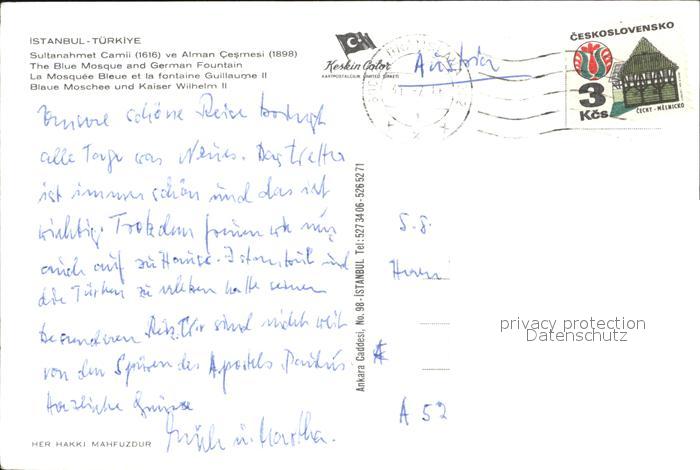 İSTANBUL-TÜRKİYE
Sultanahmet Camii (1616) ve Alman Çeşmesi (1898)
The Blue Mosque and German Fountain
La Mosquée Bleue et la fontaine Guillaume II
Blaue Moschee und Kaiser Wilhelm II
Keskin Color
KARTPOSTALCILIK LIMITED ŞİRKETİ
Austria
ČESKOSLOVENSKO
3 Kčs
ČECHY - MĚLNICKO
Unsere schöne Reise bringt
alle Tage was Neues. Das Wetter
ist immer schön und das ist
wichtig. Trotzdem freuen wir uns
auch auf zu Hause. Istanbul und
die Türken zu erleben hatte seinen
besonderen Reiz. Wir sind nicht weit
von den Spuren des Apostels Paulus.
Herzliche Grüsse
u. Martha.
HER HAKKI MAHFUZDUR
Ankara Caddesi, No. 98-İSTANBUL Tel: 5273406-5265271
S.g.
Herrn
A 52
privacy protection
Datenschutz